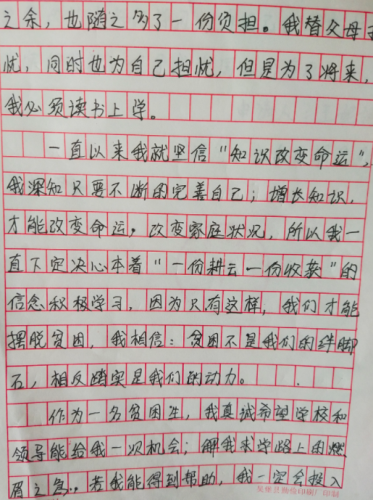 之余，也随之多了一份负担。我替父母
忧，同时也为自己担忧，但是为了将来，
我必须读书上学。
一直以来我就坚信"知识改变命运"，
我深知只要不断的完善自己；增长知识，
才能改变命运，改变家庭状况，所以我一
直下定决心本着"一份耕云一份收获"的
信念积极学习，因为只有这样，我们才能
摆脱贫困，我相信：贫困不是我们的绊脚
石，相反踏实是我们的动力。
作为一名贫困生，我真诚希望学校和
领导能给我一次机会；解我求学路上的燃
眉之急。若我能得到帮助，我一定会投入